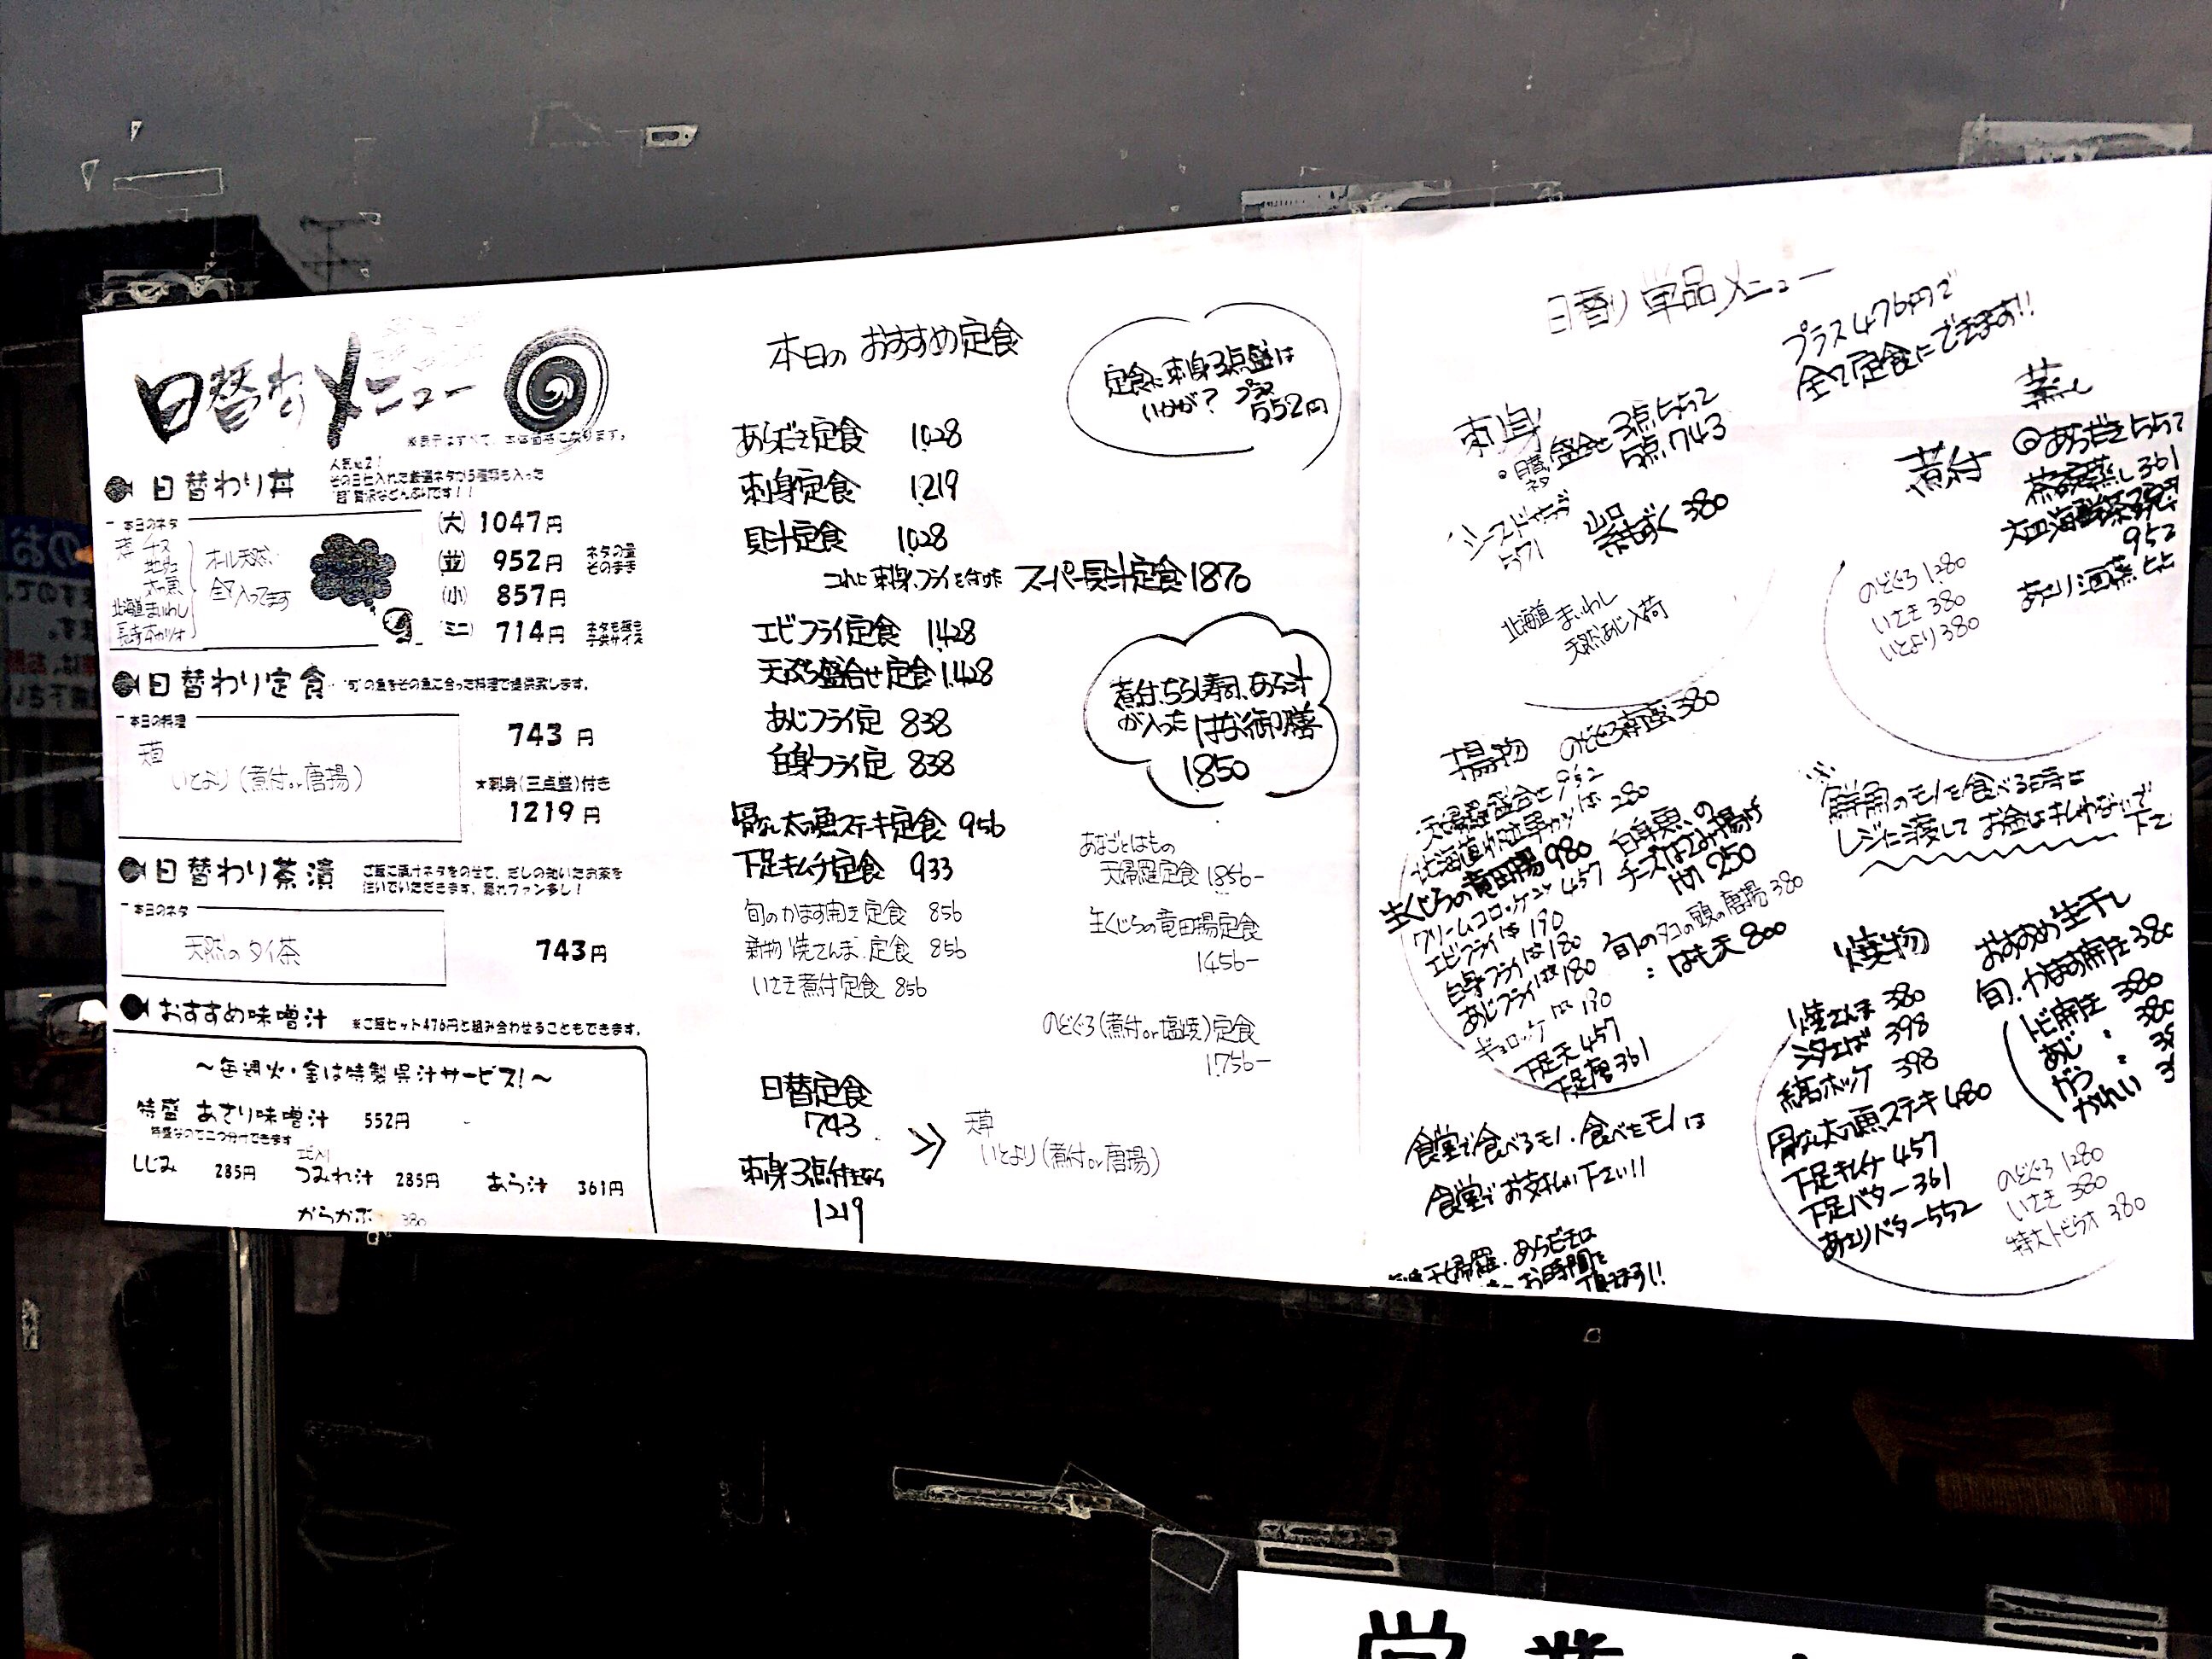 日替わりメニュー
※表示はすべて、本体価格になります。
日替わり丼
人気No.2!
その日仕入れた厳選ネタが5種類も入った
"超"贅沢などんぶりです!!
本日のネタ
地だこ
北海道まいわし
オール天然、
全て入ってます
(大) 1047円
(並) 952円
ネタの量
そのまま
(小) 857円
(ミニ) 714円
ネタも飯も
子供サイズ
日替わり定食
"旬"の魚をその魚に合った料理で提供致します。
本日の料理
天草
いとより(煮付or唐揚)
743 円
★刺身(三点盛)付き
1219 円
日替わり茶漬
ご飯に漬けネタをのせて、だしの効いたお茶を
注いでいただきます。隠れファン多し!
本日のネタ
天然のタイ茶
743円
おすすめ味噌汁
※ご飯セット476円と組み合わせることもできます。
～毎週火・金は特製貝汁サービス!～
特盛 あさり味噌汁 552円
特盛なので二つ分けできます
しじみ 285円
つみれ汁 285円
あら汁 361円
380
本日のおすすめ定食
定食に刺身3点盛は
いかが? プラス
552円
あらだき定食 1028
刺身定食 1219
貝汁定食 1028
これに刺身、フライを付けた スーパー貝汁定食1870
エビフライ定食 1428
天ぷら盛合せ定食1428
あじフライ定 838
白身フライ定 838
煮付、ちらし寿司、あら汁
が入った はな御膳
1850
骨なし太刀魚ステーキ定食 956
下足キムチ定食 933
旬のかます開き定食 856
新物 焼さんま定食 856
いさき煮付定食 856
あなごとはもの
天婦羅定食 1856-
生くじらの竜田揚定食
1456-
のどぐろ(煮付or塩焼)定食
1756-
日替定食
743
刺身3点付きなら
1219
≫ 天草
いとより(煮付or唐揚)
日替り単品メニュー
プラス476円で
全て定食にできます!!
刺身
日替ネタ
盛合せ 3点552
5点743
シーフードサラダ
571
山口
糸もずく 380
北海道まいわし
天然あじ入荷
蒸し
あらだき552
茶碗蒸し361
952
あさり酒蒸
煮付
のどぐろ1280
いさき 380
いとより380
揚物
のどぐろ南蛮380
天婦羅盛合せ 952
生くじらの竜田揚980
クリームコロッケ二ケ 457
エビフライ1本190
白身フライ1本180
あじフライ1本180
ギョロッケ 1本 190
下足天457
下足唐361
白身魚の
チーズはさみ揚げ
1本 250
旬のタコの頭の唐揚 380
はも天800
鮮魚のモノを食べる時は
レジに渡して お金は払わないで
下さい
焼物
焼さんま 380
汐さば 398
縞ホッケ 398
骨なし太刀魚ステーキ480
下足キムチ457
下足バター361
あさりバター552
おすすめ生干し
旬、かます開き380
トビ開き 380
あじ 380
かれい
のどぐろ 1280
いさき 380
特大トビウオ 380
食堂で食べるモノ・食べたモノは
食堂でお支払い下さい!!
天婦羅、あらだきは
お時間を
頂きます!!
営業